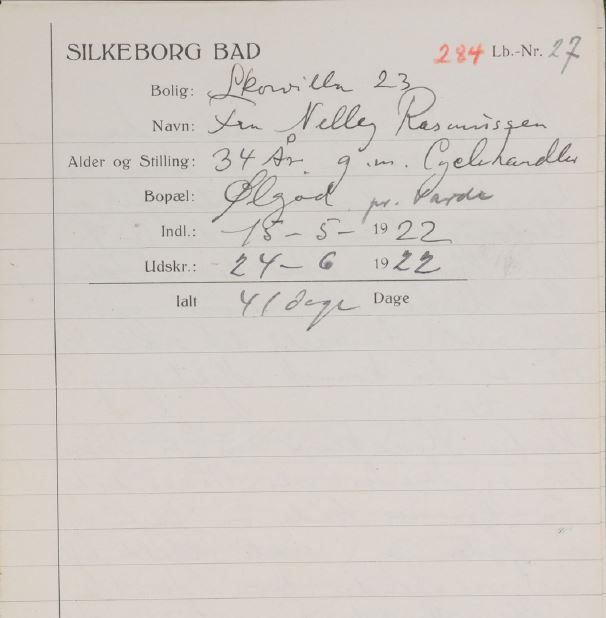 SILKEBORG BAD 284 Lb.-Nr. 27
Bolig: Skovvilla 23
Navn: Fru Nelley Rasmussen
Alder og Stilling: 34 År. g.m. Cyclehandler
Bopæl: Ølgod pr. Varde
Indl.: 15-5-1922
Udskr.: 24-6 1922
Ialt 41 dage Dage